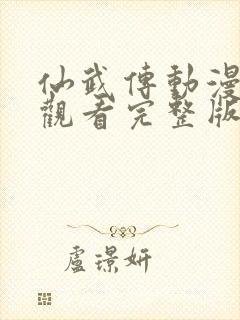 仙武傳動漫
觀看完整版
盧璟妍